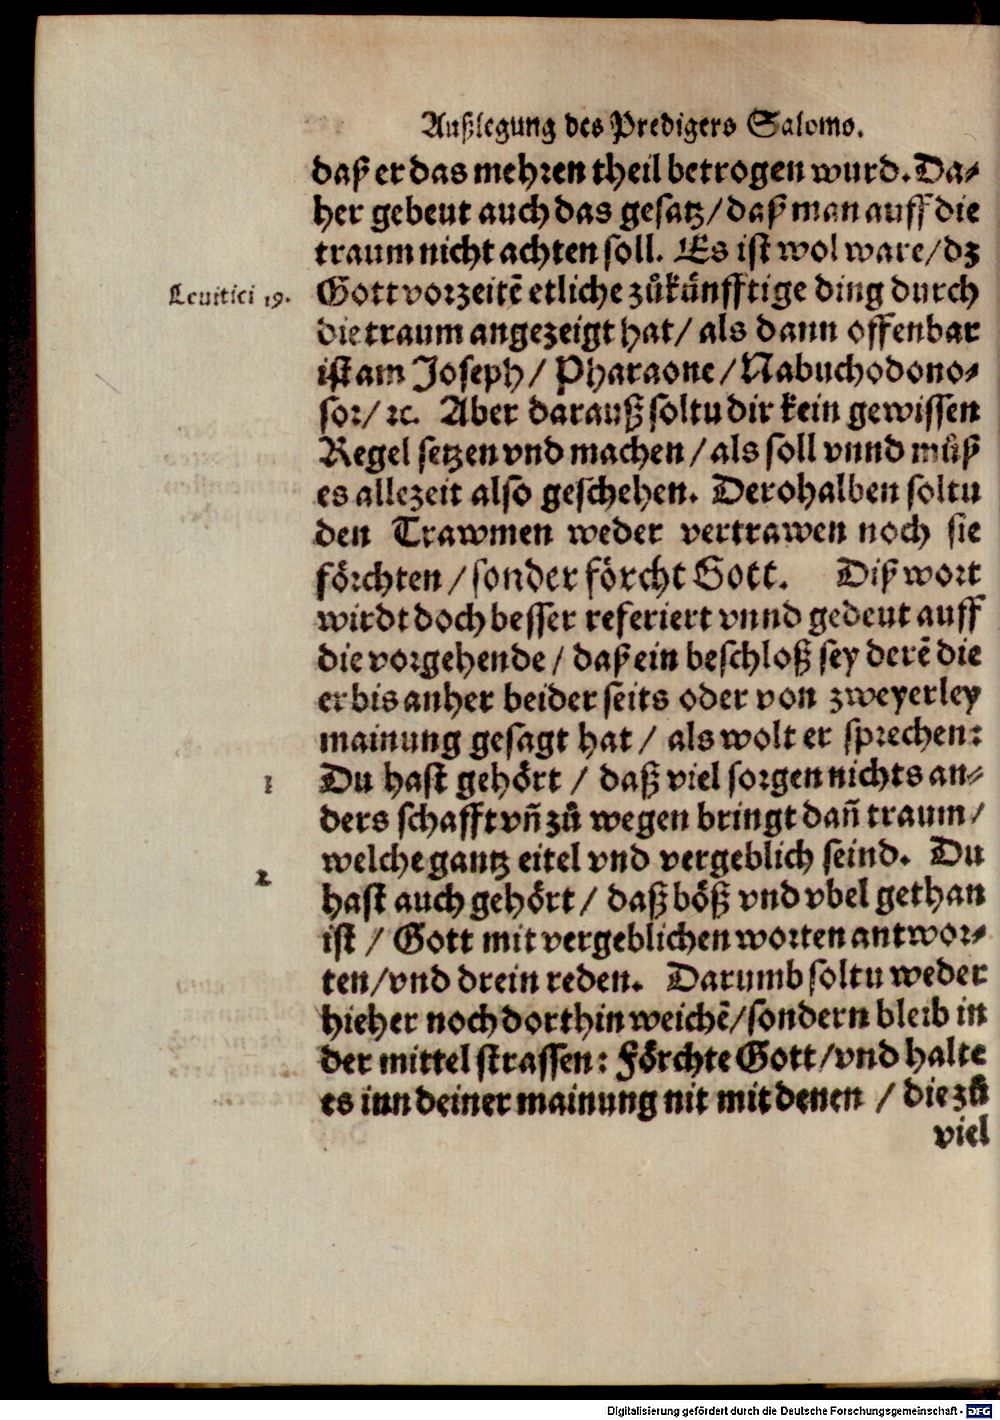 Außlegung des Predigers Salomo.
daß er das mehren theil betrogen wurd. Da⸗
her gebeut auch das gesatz / daß man auff die
traum nicht achten soll. Es ist wol ware / dz
Leuitici 19.
Gott vorzeitē etliche zůkünfftige ding durch
die traum angezeigt hat / als dann offenbar
ist am Joseph / Pharaone / Nabuchodono⸗
sor / ꝛc. Aber darauß soltu dir kein gewissen
Regel setzen vnd machen / als soll vnnd můß
es allezeit also geschehen. Derohalben soltu
den Trawmen weder vertrawen noch sie
förchten / sonder förcht Gott. Diß wort
wirdt doch besser referiert vnnd gedeut auff
die vorgehende / daß ein beschloß sey derē die
er bis anher beider seits oder von zweyerley
mainung gesagt hat / als wolt er sprechen:
1
Du hast gehört / daß viel sorgen nichts an⸗
ders schafft vñ zů wegen bringt dañ traum /
welche gantz eitel vnd vergeblich seind. Du
2
hast auch gehört / daß böß vnd vbel gethan
ist / Gott mit vergeblichen worten antwor⸗
ten / vnd drein reden. Darumb soltu weder
hieher noch dorthin weichē / sondern bleib in
der mittel strassen: Förchte Gott / vnd halte
es inn deiner mainung nit mit denen / die zů
viel
Digitalisierung gefördert durch die Deutsche Forschungsgemeinschaft - DFG